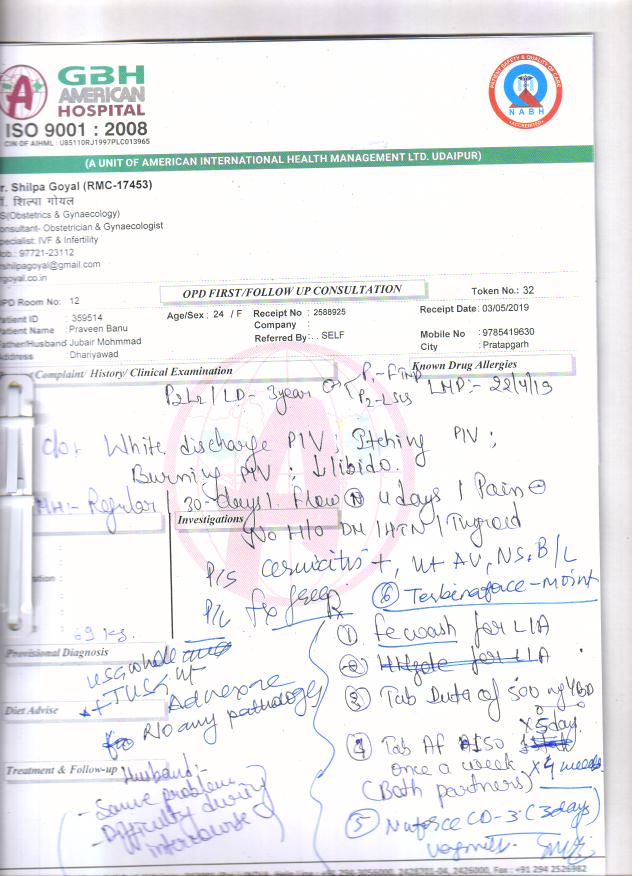 GBH
AMERICAN
HOSPITAL
ISO 9001 : 2008
CIN OF AIHML : U85110RJ1997PLC013965
PATIENT SAFETY & QUALITY OF CARE
NABH
ACCREDITED
(A UNIT OF AMERICAN INTERNATIONAL HEALTH MANAGEMENT LTD. UDAIPUR)
r. Shilpa Goyal (RMC-17453)
शिल्पा गोयल
S(Obstetrics & Gynaecology)
onsultant- Obstetrician & Gynaecologist
pecialist: IVF & Infertility
ob.: 97721-23112
rshilpagoyal@gmail.com
rgoyal.co.in
OPD FIRST/FOLLOW UP CONSULTATION
Token No.: 32
PD Room No: 12
atient ID : 359514
Age/Sex : 24 / F
Receipt No : 2588925
Receipt Date: 03/05/2019
atient Name : Praveen Banu
Company :
Father/Husband Jubair Mohmmad
Referred By: . . SELF
Mobile No : 9785419630
ddress : Dhariyawad
City : Pratapgarh
Complaint/ History/ Clinical Examination
Known Drug Allergies
P2L2 / LD- 3year
P1-FTND
P2-LSCS
LMP:- 22/4/19
c/o: White discharge P/V, Itching P/V ;
Burning P/V ; ↓libido.
MH:- Regular / 30 days / flow (N) 4 days / Pain ⊖
Investigations
No H/O DM / HTN / Thyroid
P/S cervicitis +, Ut AV, NS, B/L
P/V fx free
Rx
(6) Terbinaforce-M oint
69 kg.
(1) fewash for LIA
Provisional Diagnosis
USG whole
+ TVS Ut
Adnexae
R/O any pathology
(3) Tab
500 mg BD
x 5 day
Diet Advise
(4) Tab AF 150
once a week x 4 weeks
(Both partners)
Treatment & Follow-up
Husband :-
- Same problem
- Difficulty during
intercourse
(5) Naforce CD-3 (3 days)